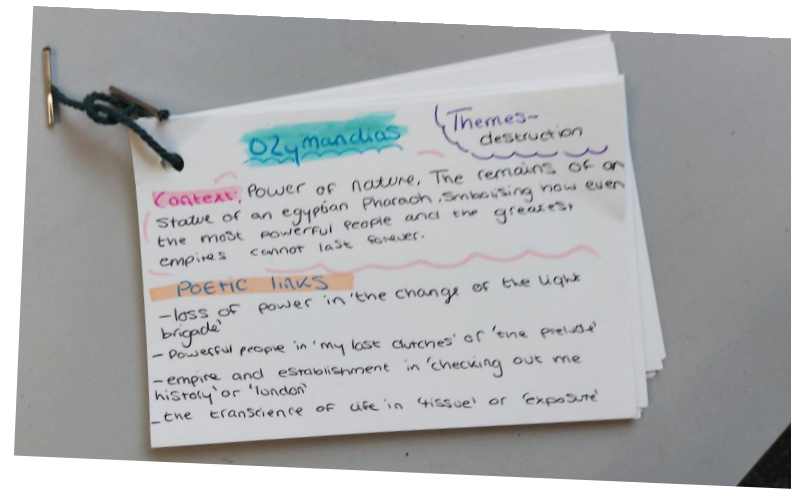 Ozymandias
Themes-
destruction
Context: Power of nature. The remains of an
statue of an egyptian Pharaoh. Smbolising how even
the most powerful people and the greatest
empires cannot last forever.
POETIC links
-loss of power in 'the change of the light
brigade'
- Powerful people in 'my last dutches' or 'the prelude'
-empire and establishment in 'checking out me
history' or 'london'
-the transcience of life in 'tissue' or 'exposure'